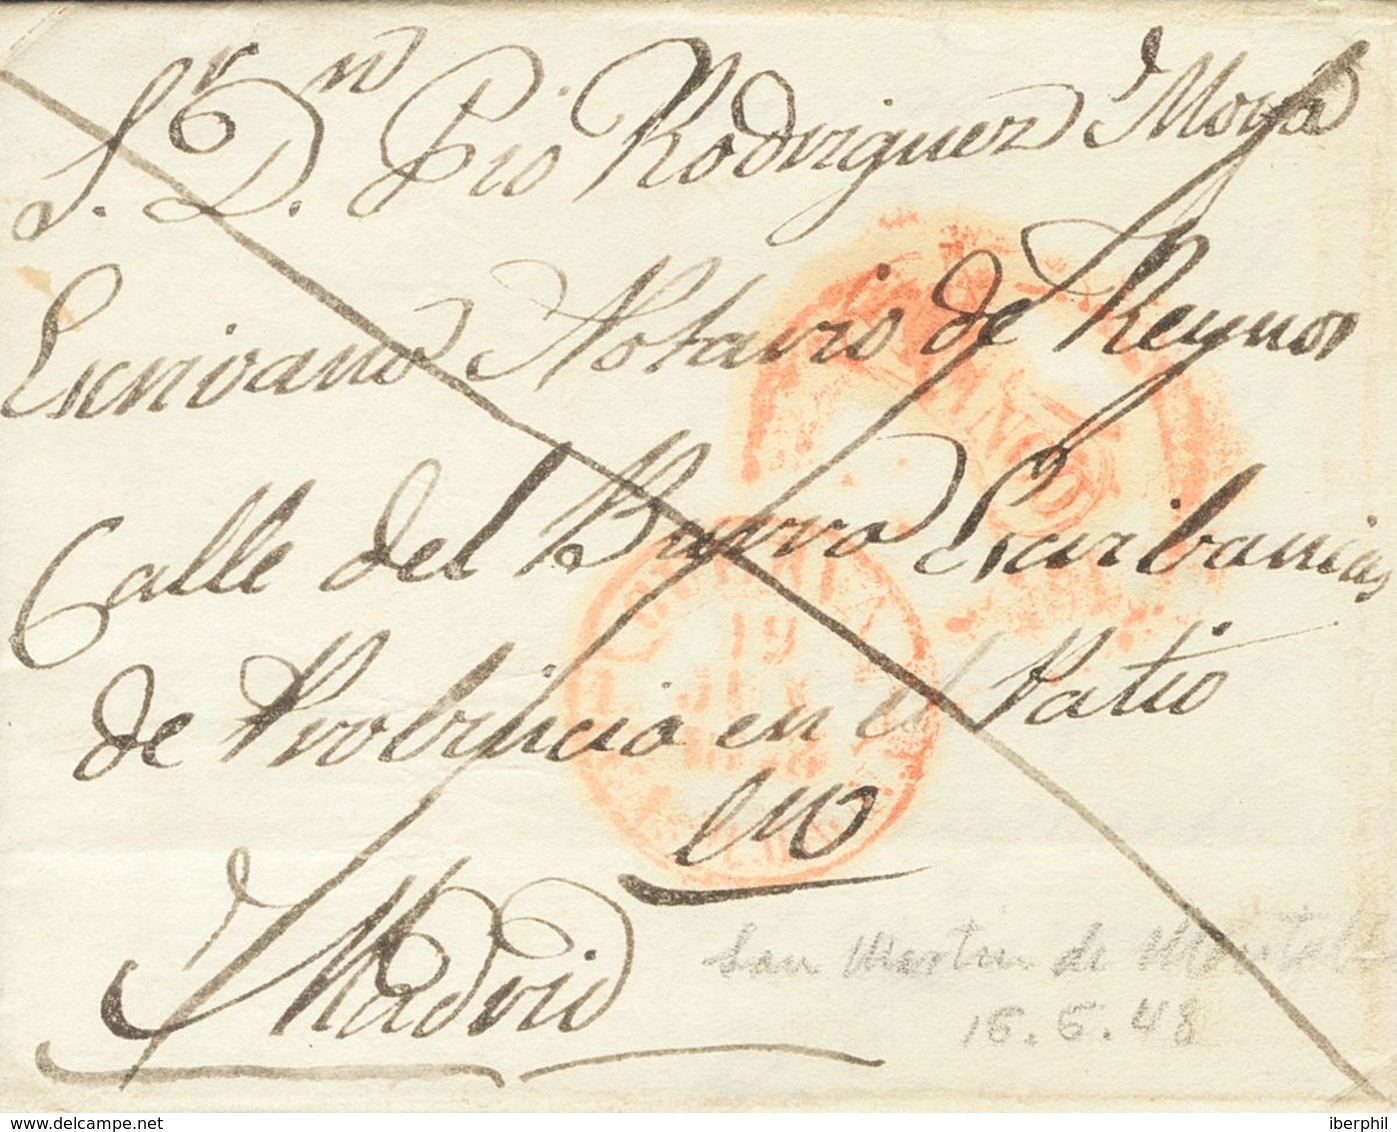 S.r D.n Pio Rodriguez Moya
Escrivano Notario de Reynos
Calle del Burro Escribanias
de Probincia en el Patio
Madrid
19
JUN
San Martin de
16.6.48
delcampe.net
iberphil